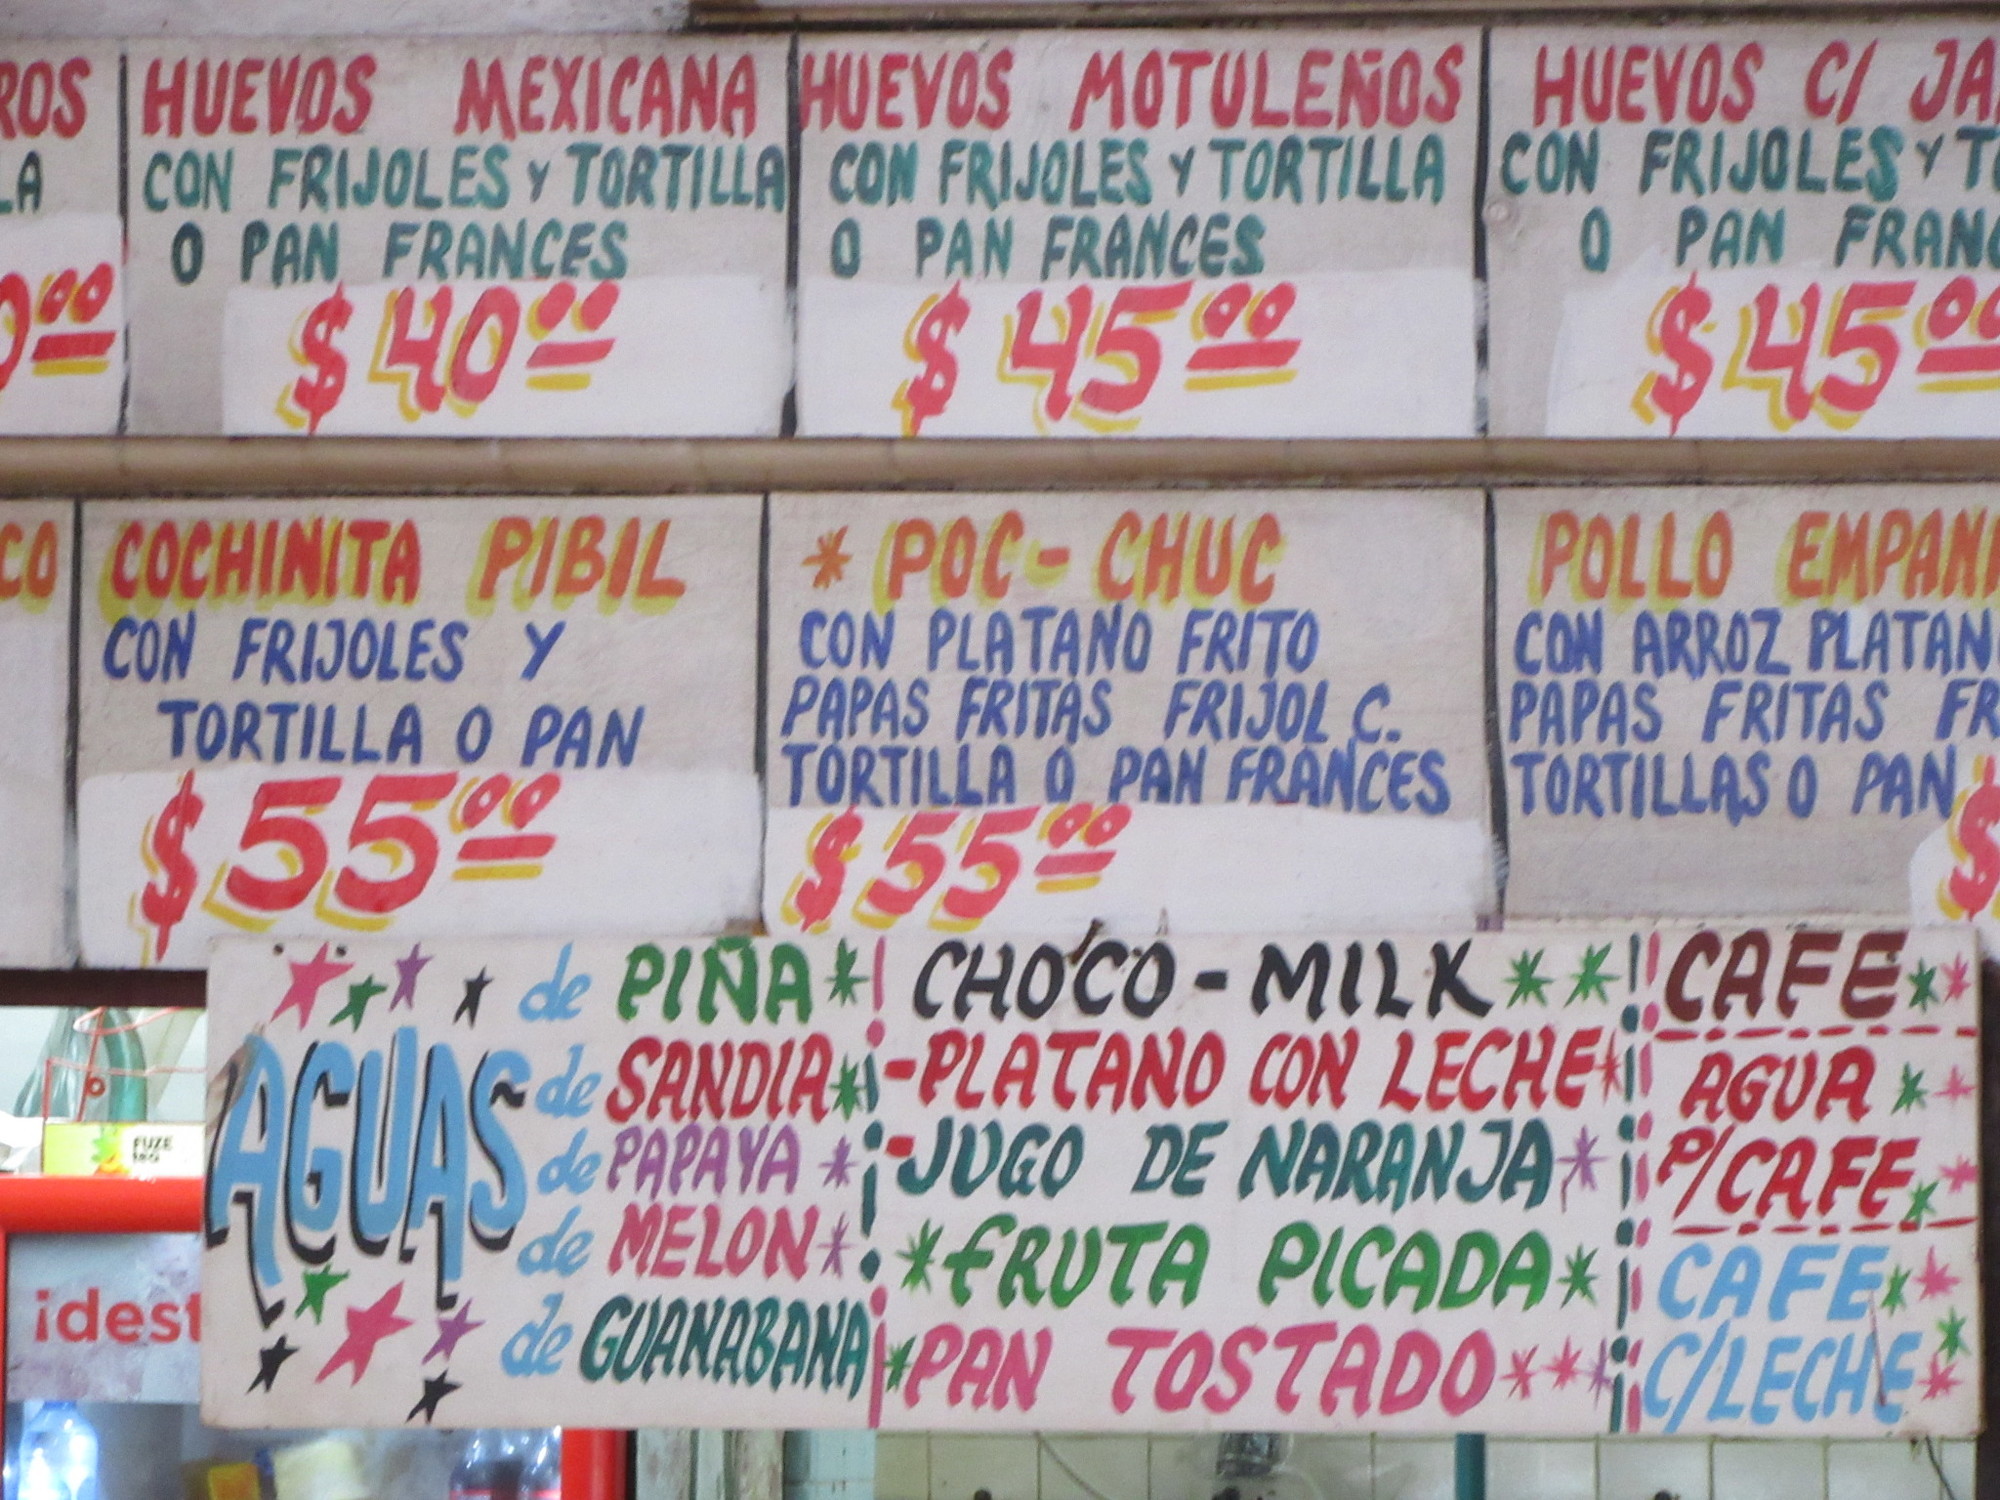 ROS
LA
0.00
HUEVOS MEXICANA
CON FRIJOLES Y TORTILLA
O PAN FRANCES
$40.00
HUEVOS MOTULEÑOS
CON FRIJOLES Y TORTILLA
O PAN FRANCES
$45.00
HUEVOS C/ JA
CON FRIJOLES Y TO
O PAN FRANC
$45.00
CO
COCHINITA PIBIL
CON FRIJOLES Y
TORTILLA O PAN
$55.00
* POC-CHUC
CON PLATANO FRITO
PAPAS FRITAS FRIJOL C.
TORTILLA O PAN FRANCES
$55.00
POLLO EMPANI
CON ARROZ PLATAN
PAPAS FRITAS FR
TORTILLAS O PAN
$
AGUAS
de PIÑA
de SANDIA
de PAPAYA
de MELON
de GUANABANA
CHOCO-MILK
-PLATANO CON LECHE
-JUGO DE NARANJA
FRUTA PICADA
PAN TOSTADO
CAFE
AGUA
P/CAFE
CAFE
C/LECHE
FUZE
TEA
¡dest